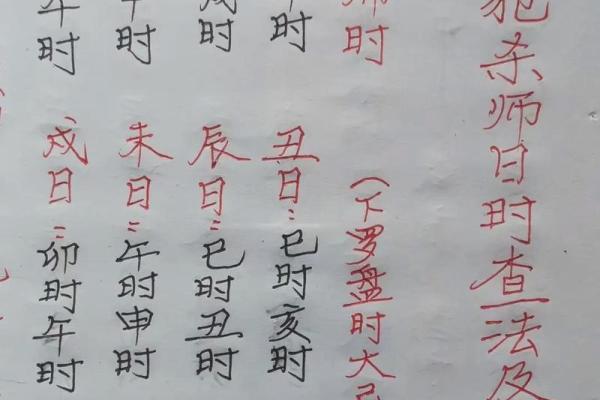 杀师日时查法及
时
(下罗盘时大
时
丑日:巳时亥时
时
辰日:巳时丑时
时
未日:午时申时
午时
戌日:卯时午时